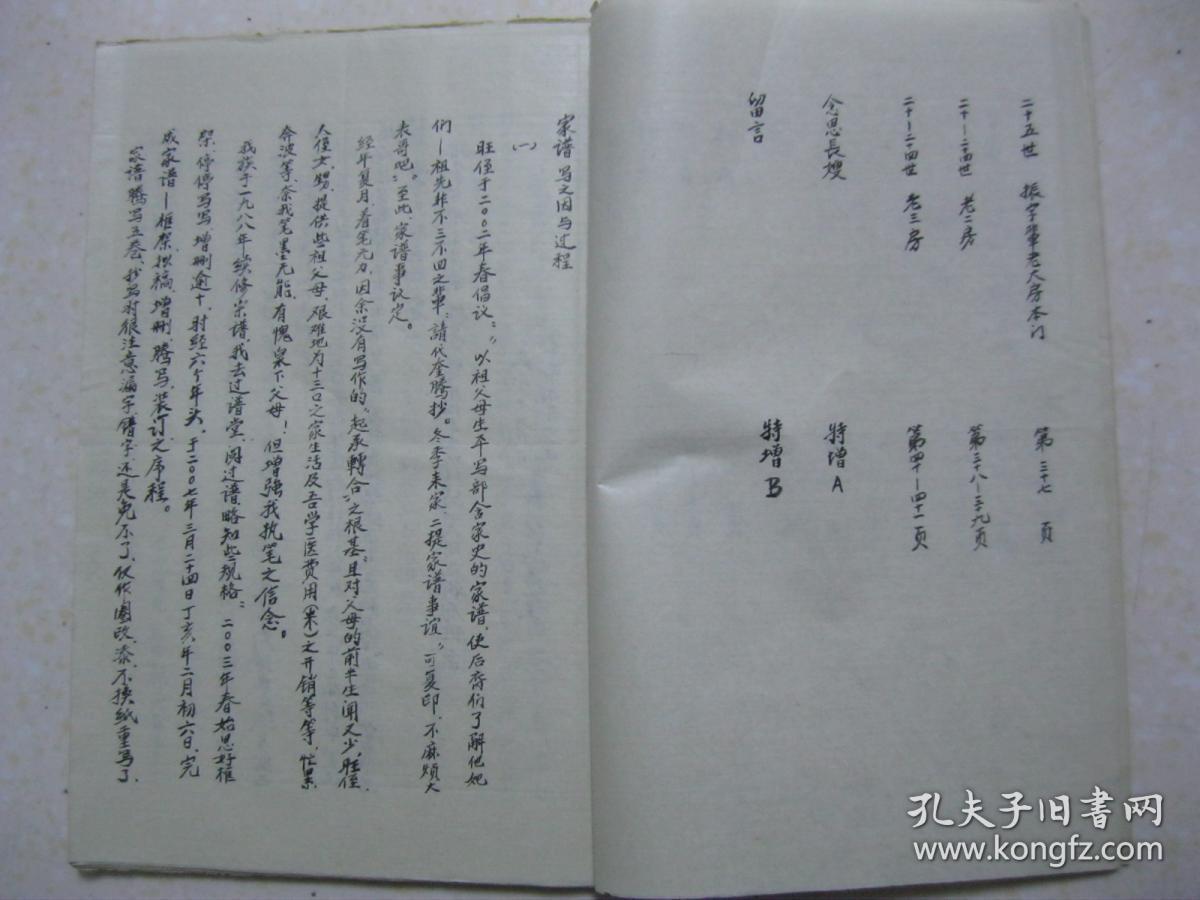 二十五世 振字辈老大房本门 第三十七页
二十一二四世 老二房 第三十八一三九页
二十一二四世 老三房 第四十一四十一页
念思長嫂 特增A
留言 特增B
家谱写之因与过程
(一)
旺侄于二00二年春倡议:"以祖父母生平写部含家史的家谱,使后裔们了解他她
们—祖先非不三不四之輩;請代奎腾抄。冬季来家,二提家谱事谊,"可复印,不麻烦大
表哥吧"。至此,家谱事议定。
经年复月,着笔无力,因余没有写作的"起承轉合"之根基;且对父母的前半生闻又少。旺侄、
人侄女、甥,提供些祖父母,艰难地为十三口之家生活及吾学医费用(米)之开销等等,忙累
奔波等,奈我笔墨无能,有愧泉下父母!但增强我执笔之信念。
我族于一九八八年续修宗谱,我去过谱堂,阅过谱,略知些规格;二00三年春始思好框
架,停停写写,增删逾十,时经六个年头,于二00七年三月二十四日丁亥年二月初六日,完
成家谱—框架拟稿,增删,腾写,装订之序程。
家谱腾写五卷,我写时很注意漏字错字,还是免不了,仅作圈改,泰不换纸重写了,
孔夫子旧书网
www.kongfz.com